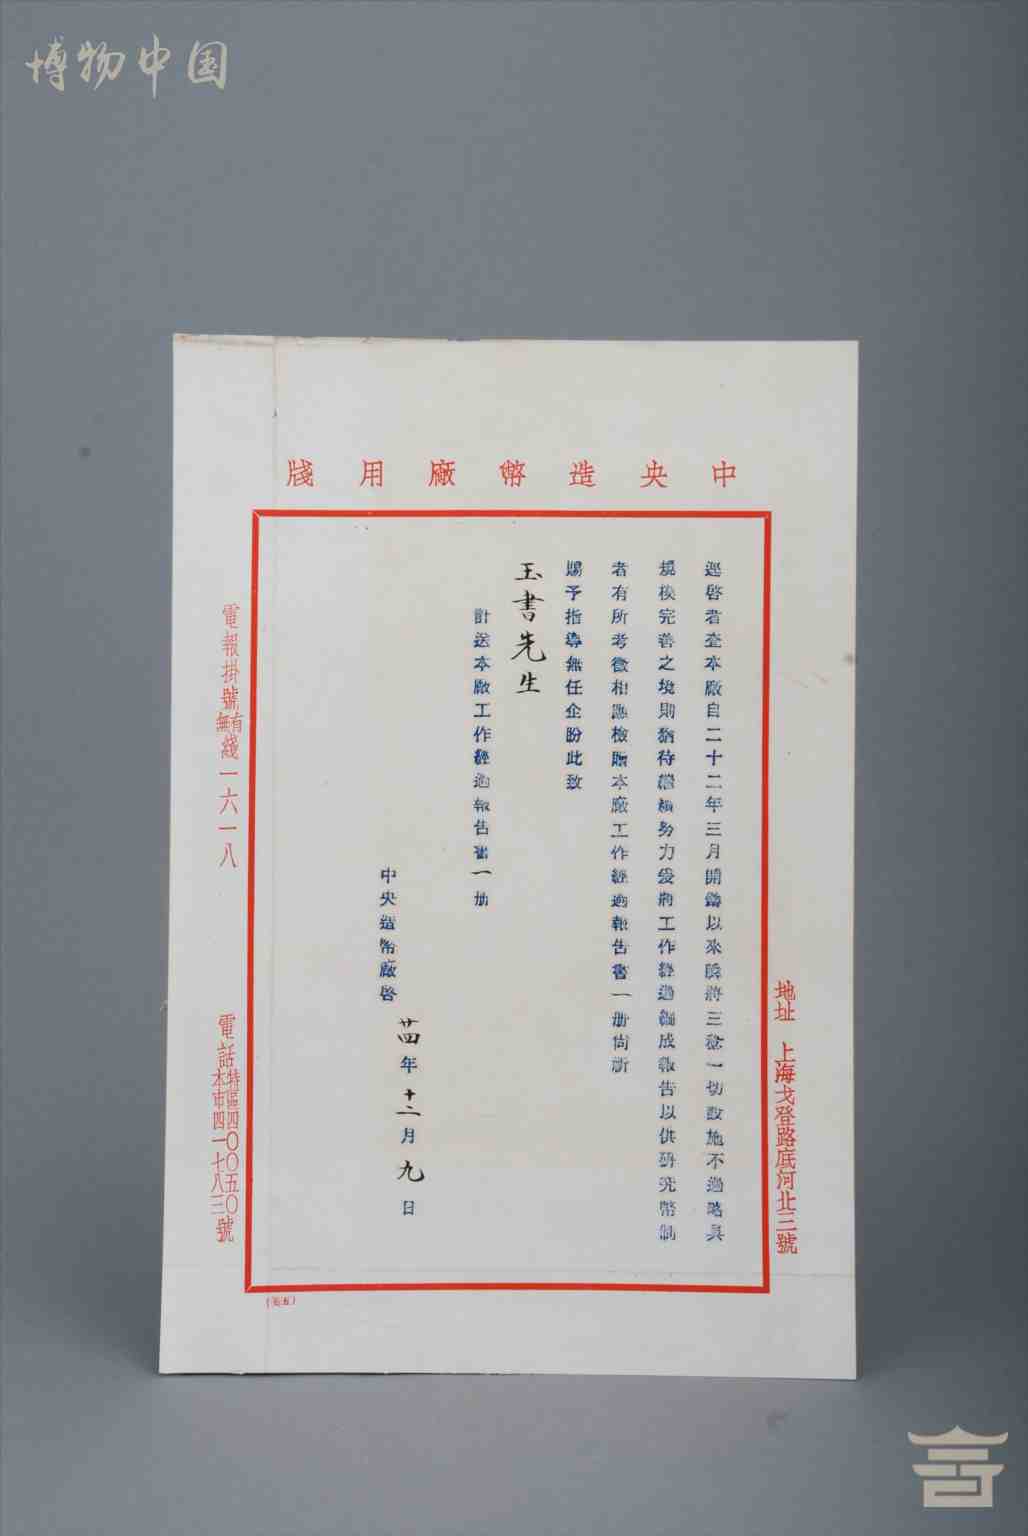 博物中国
中央造幣廠用牋
逕啓者查本廠自二十二年三月開鑄以來瞬將三稔一切設施不過略具
規模完善之境則猶待繼續努力爰將工作經過編成報告以供研究幣制
者有所考徵相應檢贈本廠工作經過報告書一册尚祈
賜予指導無任企盼此致
玉書先生
計送本廠工作經過報告書一册
中央造幣廠啓
廿四年十二月九日
地址 上海戈登路底河北三號
電報掛號有無綫一六一八
電話特區四〇〇五〇本市四一七八三號